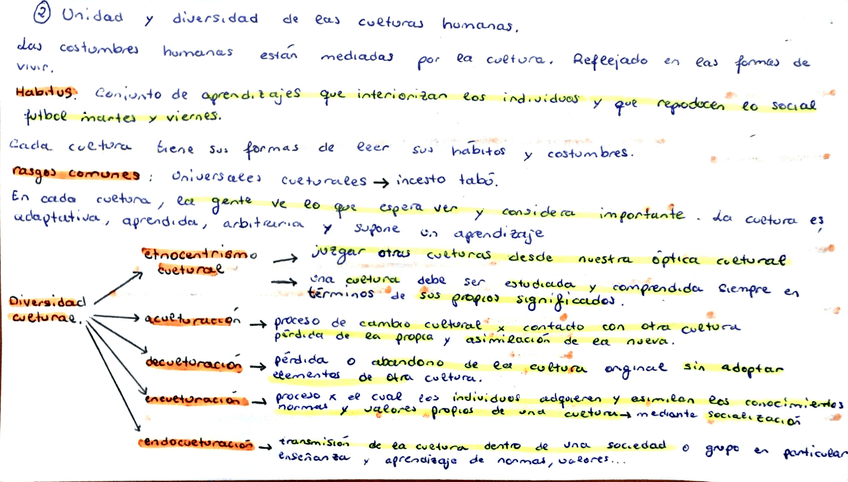 ② Unidad y diversidad de las culturas humanas.
Las costumbres humanas están mediadas por la cultura. Reflejado en las formas de
vivir.
Habitus: Conjunto de aprendizajes que interiorizan los individuos y que reproducen lo social
futbol martes y viernes.
Cada cultura tiene sus formas de leer sus hábitos y costumbres.
rasgos comunes: Universales culturales → incesto tabú.
En cada cultura, la gente ve lo que espera ver y considera importante. La cultura es,
adaptativa, aprendida, arbitraria y supone un aprendizaje
Diversidad cultural.
etnocentrismo cultural → juzgar otras culturas desde nuestra óptica cultural
→ una cultura debe ser estudiada y comprendida siempre en
términos de sus propios significados.
aculturación → proceso de cambio cultural x contacto con otra cultura
pérdida de la propia y asimilación de la nueva.
deculturación → pérdida o abandono de la cultura original sin adoptar
elementos de otra cultura.
enculturación → proceso x el cual los individuos adquieren y asimilan los conocimientos
normas y valores propios de una cultura → mediante socialización
endoculturación → transmisión de la cultura dentro de una sociedad o grupo en particular
enseñanza y aprendizaje de normas, valores...